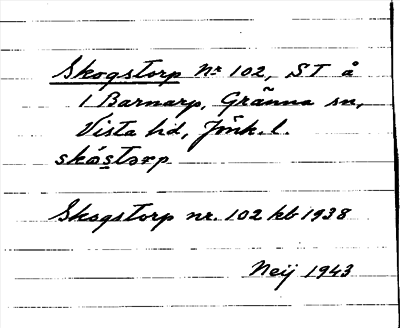 Skogstorp nr 102, ST å
1 Barnarp, Gränna sn,
Vista hd, Jönk. l.
skóstorp
Skogstorp nr. 102 kb 1938
Neij 1943